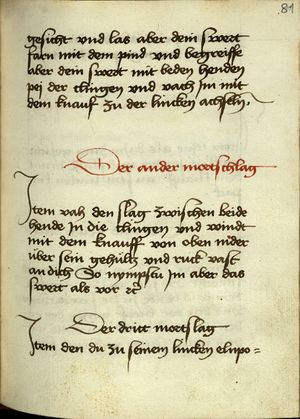 81
gesicht vnd las aber dein swert
farn mit dem pind vnd begreiffe
aber dein swert mit beden henden
pej der klingen vnd vach Jm mit
dem knauf zu der lincken achseln.
Der ander mortschlag
Jtem vah den slag zwischen beide
hende Jn die klingen vnd windt
mit dem knauff von oben nider
über sein gehültz vnd ruck vast
an dich So nympstu im aber das
swert als vor etc
Der dritt mortslag
Jtem den du zu seinem lincken elnpo=